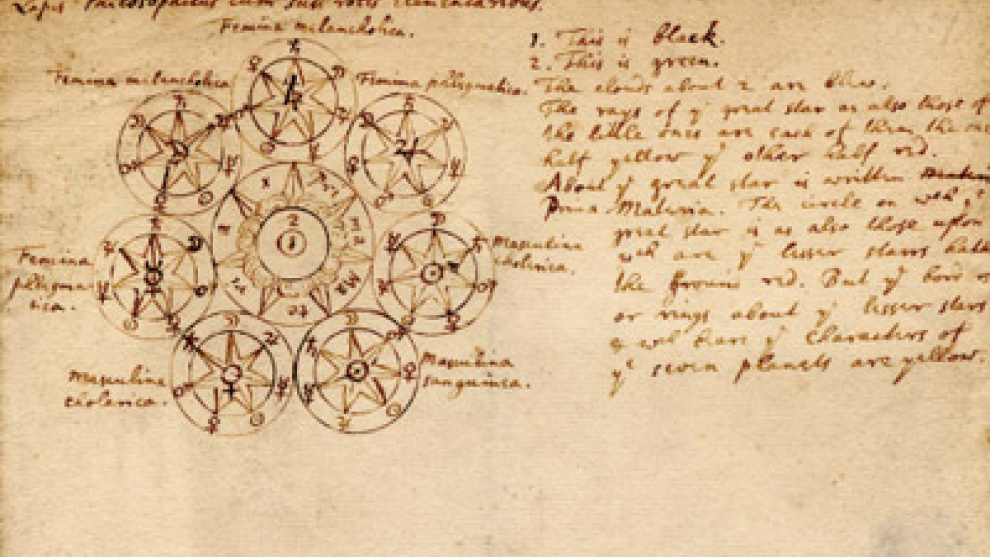 Lapis Philosophicus cum suis rotis elementaribus.
Femina melancholica.
Femina melancholica
Femina phlegmatica.
Femina
phlegma
tica.
Masculina
cholerica.
Masculina
cholerica.
Masculina
sanguinea.
2
1
1. This is black.
2. This is green.
The clouds about 2 are blew.
The rays of yͤ great star as also those of
the little ones are each of them the one
half yellow yͤ other half red.
About yͤ great star is written
Prima Materia. The circle on wch yͤ
great star is as also those upon
wch are yͤ lesser starrs hath
the ground red. But yͤ
or rings about yͤ lesser starrs
& wch have yͤ characters of
yͤ seven planets are yellow.